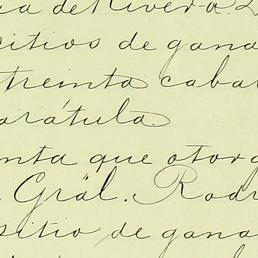 ia de Rivera. D
sitios de gana
treinta cabal
arátula.
enta que otorg
. Gräl. Rodr
sitio de gana